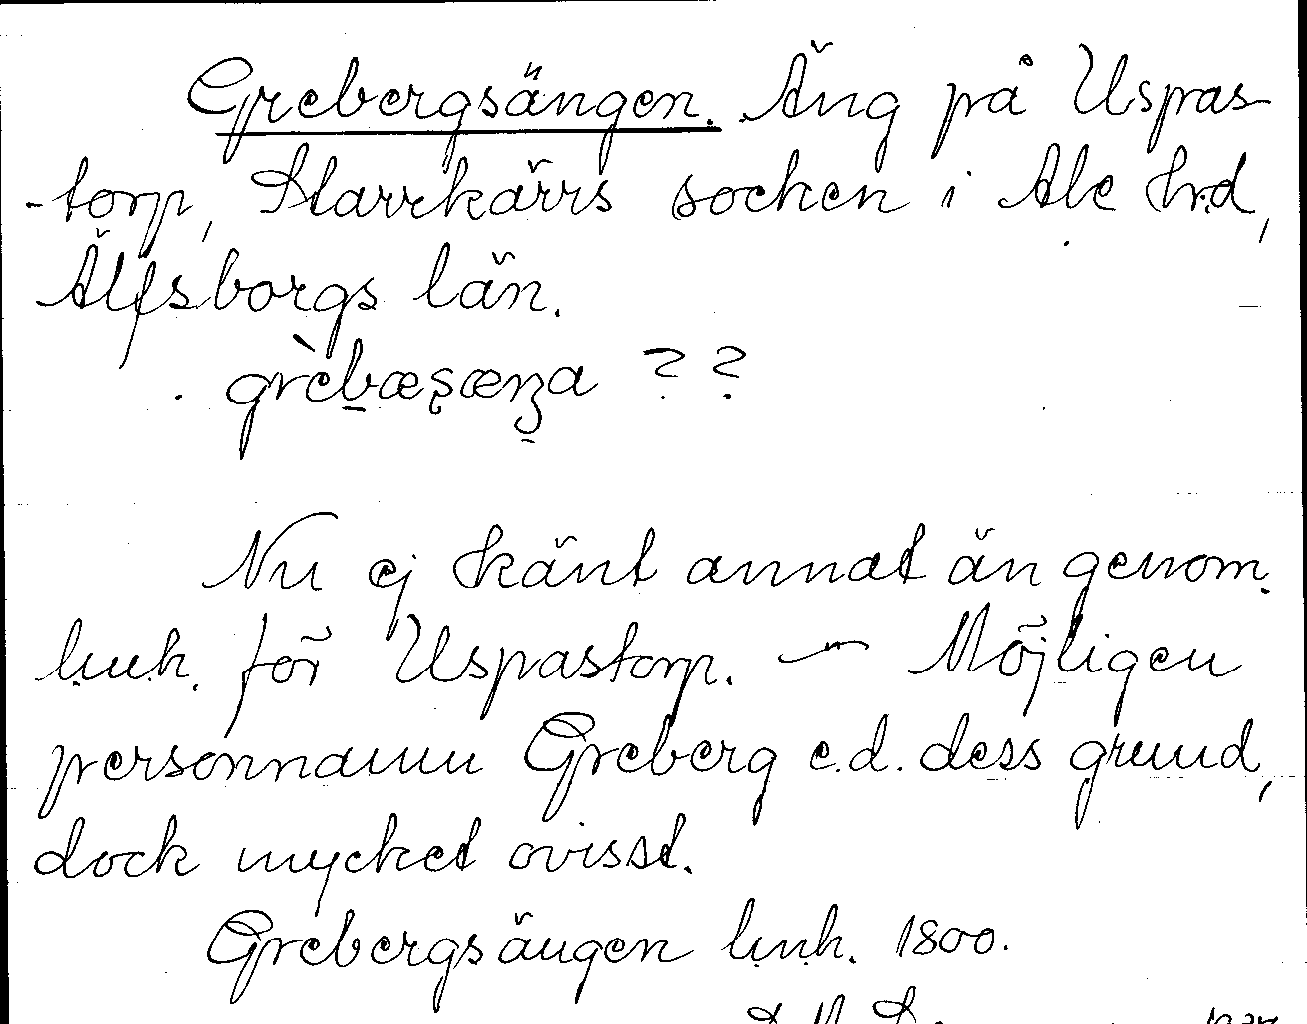 Grebergsängen. Äng på Uspas-
-torp, Starrkärrs socken i Ale hrd,
Älfsborgs län.
grèbæsæŋa ??
Nu ej känt annat än genom
l.m.h. för Uspastorp. — Möjligen
personnamn Greberg e.d. dess grund,
dock mycket ovisst.
Grebergsängen l.m.h. 1800.